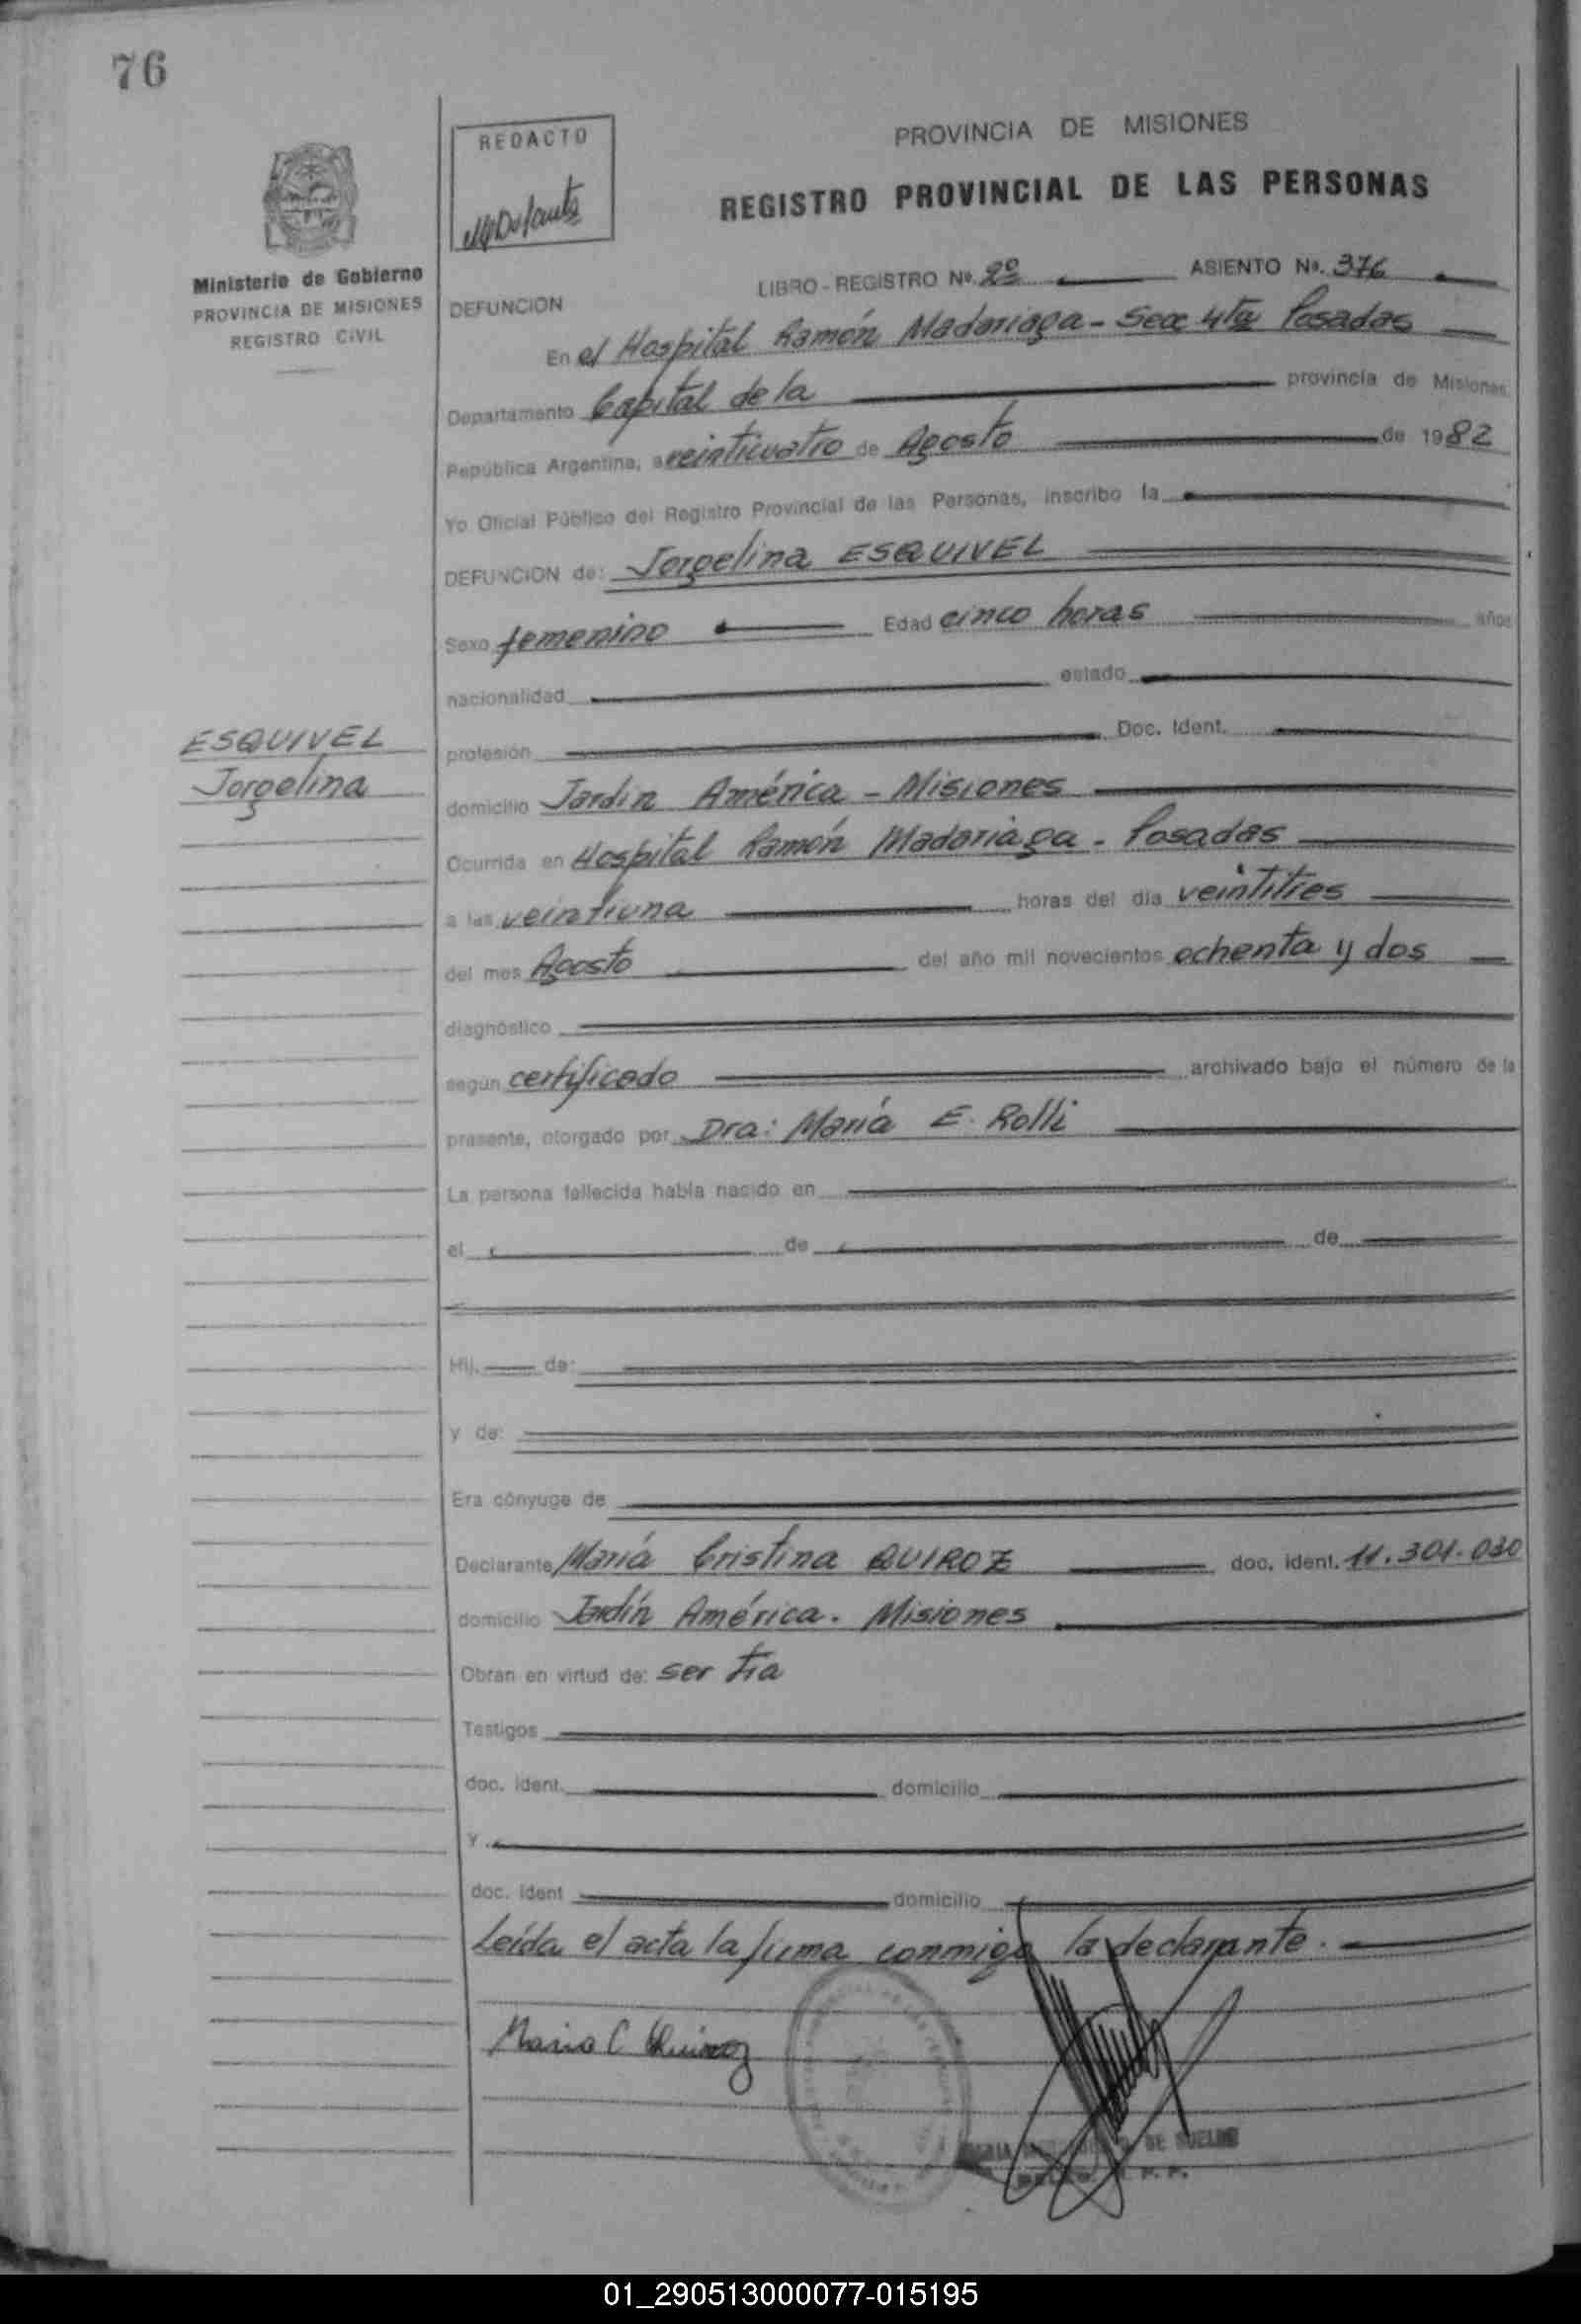 76
REDACTO
PROVINCIA DE MISIONES
REGISTRO PROVINCIAL DE LAS PERSONAS
Ministerio de Gobierno
PROVINCIA DE MISIONES
REGISTRO CIVIL
LIBRO - REGISTRO Nº. 2º ASIENTO Nº. 376
DEFUNCION
En el Hospital Ramón Madariaga - Secc 4ta Posadas
Departamento Capital de la provincia de Misiones
República Argentina, a veinticuatro de Agosto de 1982
Yo Oficial Público del Registro Provincial de las Personas, inscribo la
DEFUNCION de: Jorgelina ESQUIVEL
Sexo femenino Edad cinco horas años
nacionalidad estado
ESQUIVEL
Jorgelina
profesión Doc. Ident.
domicilio Jardín América - Misiones
Ocurrida en Hospital Ramón Madariaga - Posadas
a las veintiuna horas del día veintitres
del mes Agosto del año mil novecientos ochenta y dos
diagnóstico
según certificado archivado bajo el número de la
presente, otorgado por Dra: María E. Rolli
La persona fallecida había nacido en
el de de
Hij. de:
y de:
Era cónyuge de
Declarante María Cristina QUIROZ doc. ident. 11.301.030
domicilio Jardín América. Misiones
Obran en virtud de: ser tía
Testigos
doc. ident. domicilio
Y
doc. ident domicilio
Leída el acta la firma conmigo la declarante.
Maria C Quiroz
01_290513000077-015195